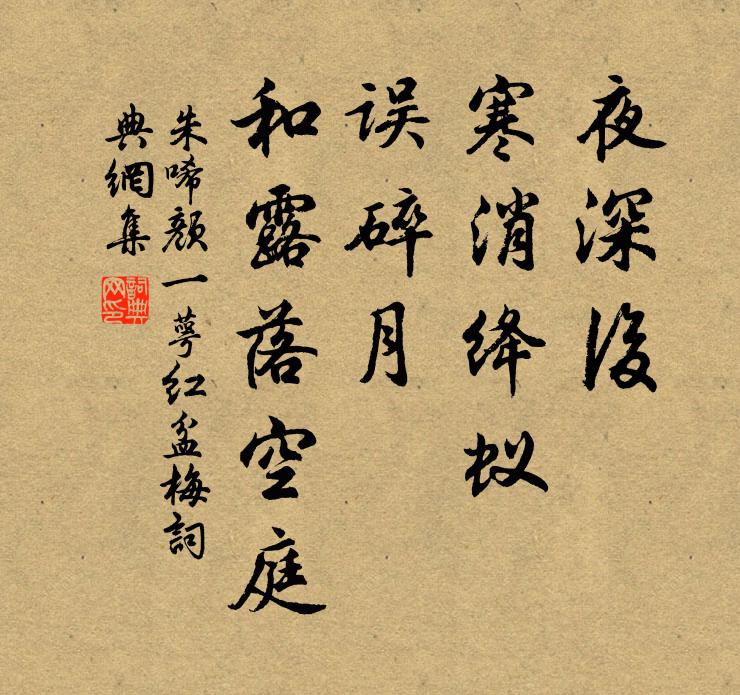 夜深后
寒消绛蚁
误碎月
和露落空庭
朱唏颜一萼红盆梅詞
典網集
詞典
网印